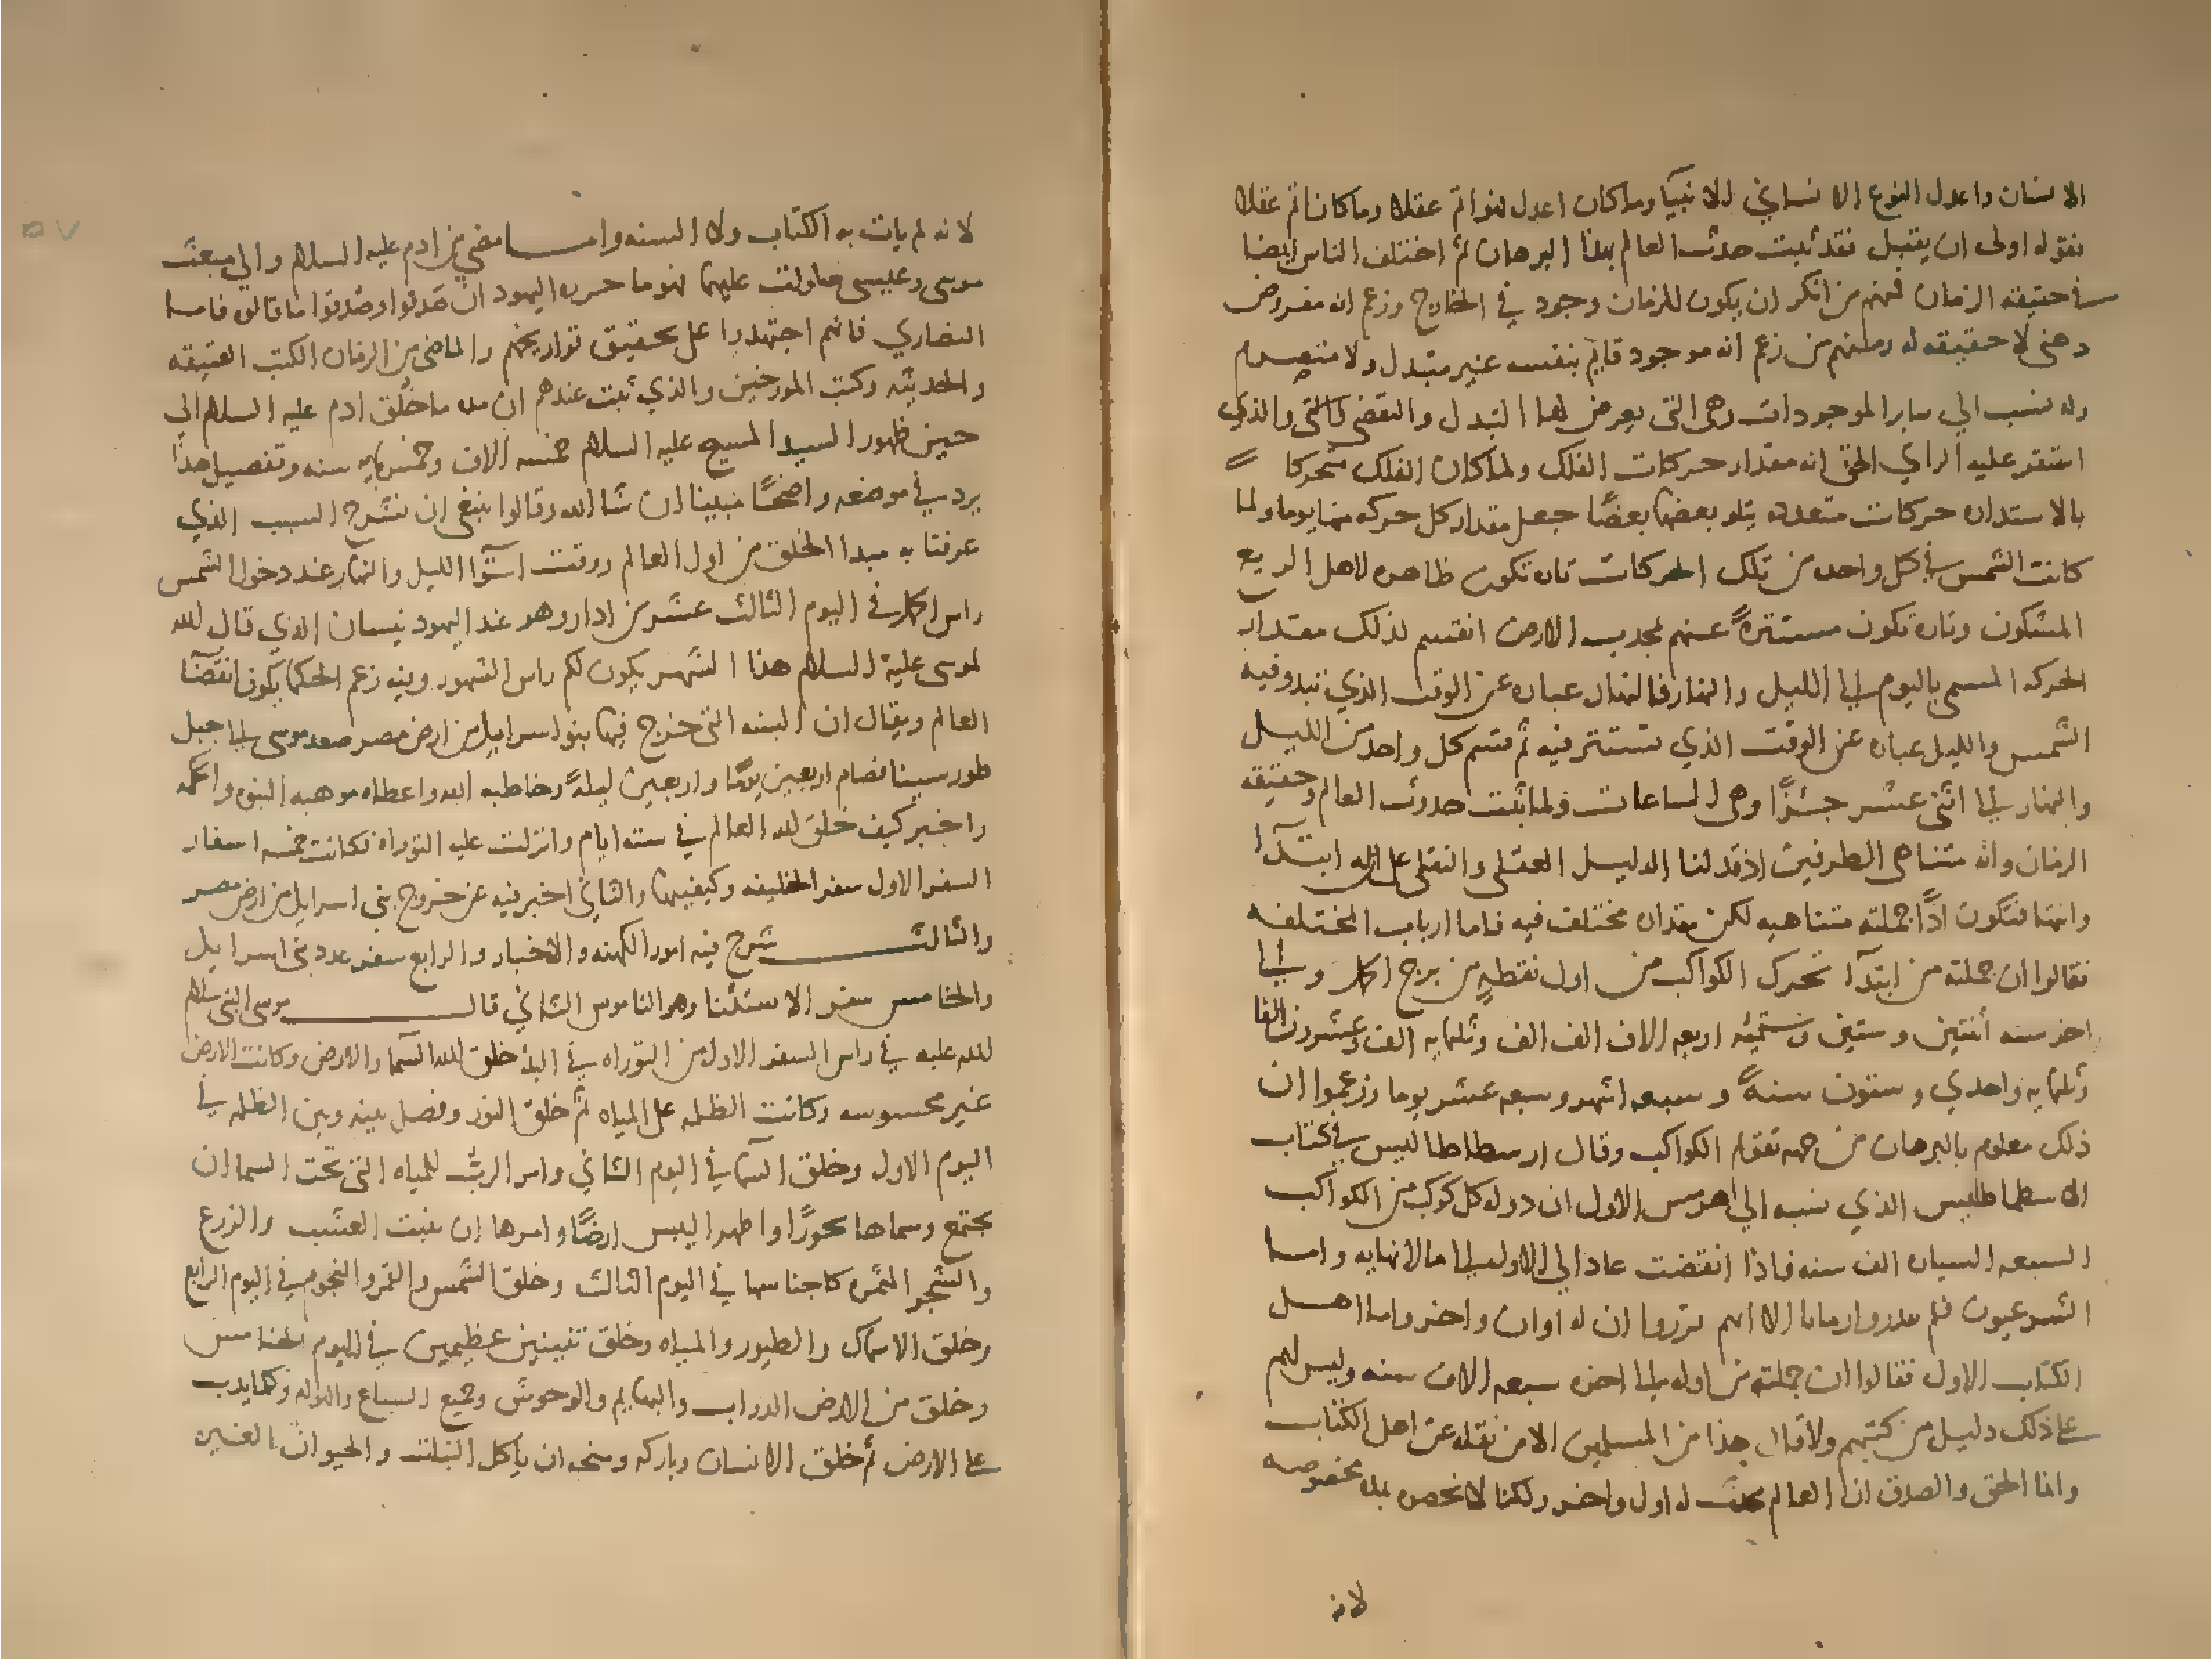 الانسان واعدل النوع الانساني الانبيا وما كان اعدل فهو اتم عقلا وما كان اتم عقلا
فقوله اولى ان يقبل فقد ثبت حدث العالم بهذا البرهان ثم اختلف الناس ايضا
في حقيقه الزمان فمنهم من انكر ان يكون للزمان وجود في الخارج وزعم انه مفروض
دهني لا حقيقه له ومنهم من زعم انه موجود قايم بنفسه غير متبدل ولا متصرم
وله نسب الي ساير الموجودات وهي التي يعرض لها التبدل والتقضي كالتي والذي
استقر عليه الراي الحق انه مقدار حركات الفلك ولما كان الفلك متحركا
بالاستداره حركات متعدده يتلو بعضها بعضا جعل مقدار كل حركه منها يوما ولما
كانت الشمس في كل واحده من تلك الحركات تاره تكون ظاهره لاهل الربع
المسكون وتاره تكون مستترة عنهم بحدب الارض انقسم لذلك مقدار
الحركه المسمى باليوم الي الليل والنهار فالنهار عباره عن الوقت الذي تبدو فيه
الشمس والليل عباره عن الوقت الذي تستتر فيه ثم قسم كل واحد من الليل
والنهار الي اثني عشر جزءا وهي الساعات ولما ثبت حدوث العالم وحقيقه
الزمان وانه متناهي الطرفين اذ قد لنا الدليل العقلي والنقلي على ان له ابتدآ
وانتها فتكون اذًا جملته متناهيه لكن مقداره مختلف فيه فاما ارباب المختلفه
فقالوا ان جملته من ابتدآ تحرك الكواكب من اول نقطةٍ من برج الحمل والي
اخر سنه اثنتين وستين وستميه اربعه الاف الف الف وثلثمايه الف وعشرون الفا
وثلثمايه واحدي وستون سنةً وسبعه اشهر وسبعه عشر يوما وزعموا ان
ذلك معلوم بالبرهان من جهه تقويم الكواكب وقال ارسطاطاليس في كتاب
الاسطماطيس الذي نسبه الي هرمس الاول ان دوله كل كوكب من الكواكب
السبعه السياره الف سنه فاذا انقضت عاد الي الاول الي ما لا نهايه واما
الشرعيون فلم يقدروا زمانا الا انهم قرروا ان له اولا واخر واما اهل
الكتاب الاول فقالوا ان جملته من اوله الي اخره سبعه الاف سنه وليس لهم
على ذلك دليل من كتبهم ولا قال بهذا من المسلمين الا من نقله عن اهل الكتاب
وانما الحق والصدق ان العالم محدث له اول واخر ولكنا لا نخصه بمده مخصوصه
لانه
لانه لم يات به الكتاب ولا السنه واما ما مضي من ادم عليه السلام والي مبعث
موسى وعيسى صلوات عليهما فهو ما حرره اليهود ان صدقوا وصدقوا ما قالوه فاما
النصاري فانهم اجتهدوا على تحقيق تواريخهم والماضي من الزمان الكتب العتيقه
والحديثه وكتب المورخين والذي ثبت عندهم ان مده ما خلق ادم عليه السلام الى
حين ظهور السيد المسيح عليه السلام خمسه الاف وخمس مايه سنه وتفصيل هذا
يرد في موضعه واضحًا مبينا ان شا الله وقالوا ينبغي ان نشرح السبب الذي
عرفنا به مبدا الخلق من اول العالم ووقت استوا الليل والنهار عند دخول الشمس
راس الحمل في اليوم الثالث عشر من ادار وهو عند اليهود نيسان الذي قال الله
لموسى عليه السلام هذا الشهر يكون لكم راس الشهور وفيه زعم الحكما يكون انقضا
العالم ويقال ان السنه التي خرج فيها بنو اسرايل من ارض مصر صعد موسى الي جبل
طور سينا فصام اربعين يومًا واربعين ليلةً وخاطبه الله واعطاه موهبه النبوه والحكمه
واخبر كيف خلق الله العالم في سته ايام وانزلت عليه التوراه فكانت خمسه اسفار
السفر الاول سفر الخليقه وكيفيتها والثاني اخبر فيه عن خروج بني اسرايل من ارض مصر
والثالث شرح فيه امور الكهنه والاحبار والرابع سفر عدد بني اسرايل
والخامس سفر الاستثنا وهو الناموس الثاني قال موسى النبي سلام
الله عليه في راس السفر الاول من التوراه في البدء خلق الله السما والارض وكانت الارض
غير محسوسه وكانت الظلمه على المياه ثم خلق النور وفصل بينه وبين الظلمه في
اليوم الاول وخلق السما في اليوم الثاني وامر الرب للمياه التي تحت السما ان
تجتمع وسماها بحورًا واظهر اليبس ارضًا وامرها ان تنبت العشب والزرع
والشجر المثمره كاجناسها في اليوم الثالث وخلق الشمس والقمر والنجوم في اليوم الرابع
وخلق الاسماك والطيور والمياه وخلق تنينين عظيمين في اليوم الخامس
وخلق من الارض الدواب والبهايم والوحوش وجميع السباع والهوام وكلما يدب
على الارض ثم خلق الانسان وباركه ومنحه ان ياكل النبات والحيوان الغير